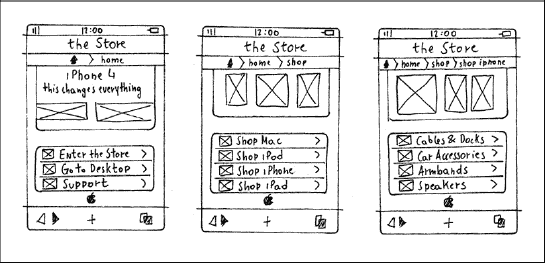 12:00
the Store
home
iPhone 4
this changes everything
Enter the Store
Go to Desktop
Support
12:00
the Store
home shop
Shop Mac
Shop iPod
Shop iPhone
Shop iPad
12:00
the Store
home shop shop iphone
Cables & Docks
Car Accessories
Armbands
Speakers